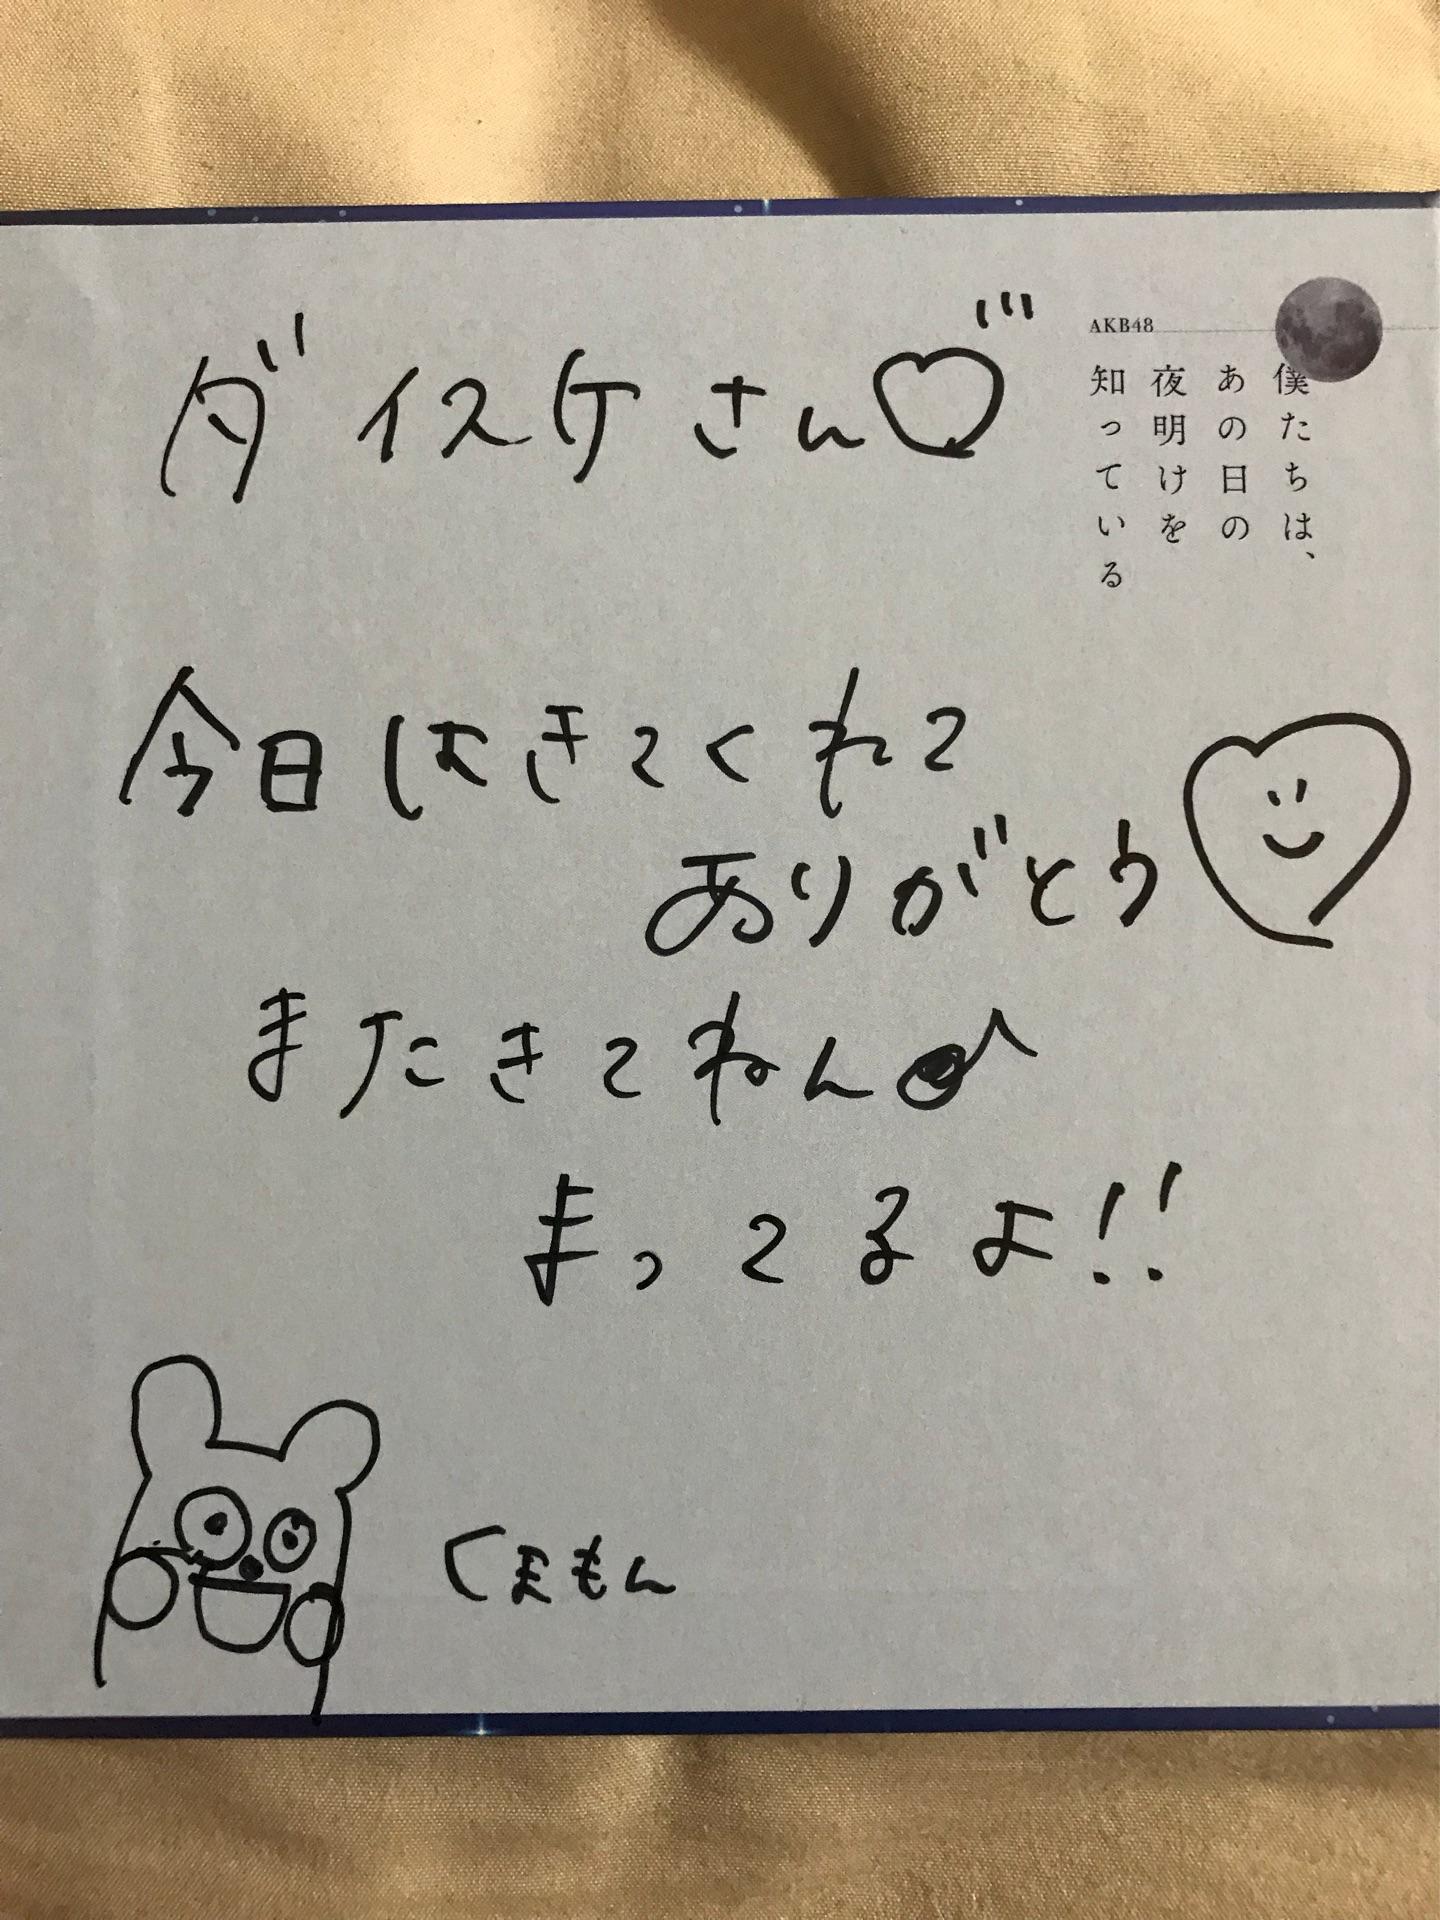 ダイスケさん♡
AKB48
僕たちは、
あの日の
夜明けを
知っている
今日はきてくれて
ありがとう
またきてねん♪
まってるよ!!
くまもん